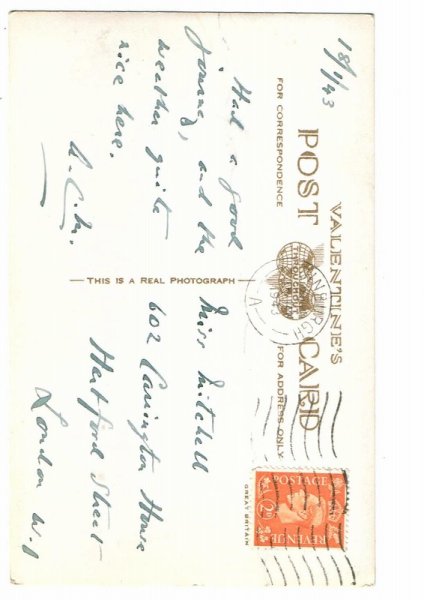 18/1/43
VALENTINE'S
POST CARD
FOR CORRESPONDENCE
FOR ADDRESS ONLY.
Had a good
journey, and the
weather quite
nice here.
A.C.M.
THIS IS A REAL PHOTOGRAPH
EDINBURGH
1943
A
GREAT BRITAIN
POSTAGE
2D
REVENUE
Miss Mitchell
602 Carrington House
Hertford Street
London W.1